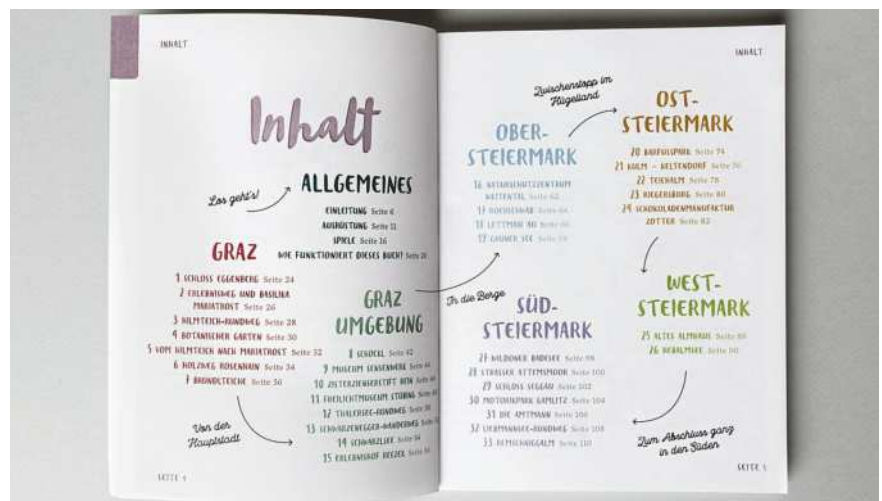 INHALT
Inhalt
Los geht's!
ALLGEMEINES
EINLEITUNG Seite 6
AUSRÜSTUNG Seite 11
SPIELE Seite 16
WIE FUNKTIONIERT DIESES BUCH? Seite
GRAZ
1 SCHLOSS EGGENBERG Seite 24
2 ERLEBNISWEG UND BASILIKA
MARIATROST Seite 26
3 HILMTEICH-RUNDWEG Seite 28
4 BOTANISCHER GARTEN Seite 30
5 VOM HILMTEICH NACH MARIATROST Seite 32
6 HOLZWEG ROSENHAIN Seite 34
7 BRÜNDLTEICHE Seite 36
Von der
Hauptstadt
GRAZ
UMGEBUNG
8 SCHÖCKL Seite 42
9 MUSEUM SENSENWERK Seite 44
10 ZISTERZIENSERSTIFT REIN Seite
11 FREILICHTMUSEUM STÜBING Seite
12 THALERSEE-RUNDWEG Seite
13 SCHWARZENEGGER-WANDERWEG
14 SCHWARZLSEE Seite 54
15 ERLEBNISHOF RECZEK Seite
SEITE
INHALT
OBER-
STEIERMARK
16 NATURSCHUTZZENTRUM
WEITENTAL Seite 62
17 HOCHSCHWAB Seite 64
18 LETTMAIR AU Seite
19 GRÜNER SEE Seite
In die Berge
Zwischenstopp im
Hügelland
OST-
STEIERMARK
20 BARFUSSPARK Seite 74
21 KULM - KELTENDORF Seite 76
22 TEICHALM Seite 78
23 RIEGERSBURG Seite 80
24 SCHOKOLADENMANUFAKTUR
ZOTTER Seite 82
WEST-
STEIERMARK
25 ALTES ALMHAUS Seite 88
26 HEBALMSEE Seite 90
SÜD-
STEIERMARK
27 WILDONER BADESEE Seite 98
28 STRASSER ATTEMSMOOR Seite 100
29 SCHLOSS SEGGAU Seite 102
30 MOTORIKPARK GAMLITZ Seite 104
31 DIE AMTMANN Seite 106
32 LIEBMANNSEE-RUNDWEG Seite 108
33 REMSCHNIGGALM Seite 110
Zum Abschluss ganz
in den Süden
SEITE 5